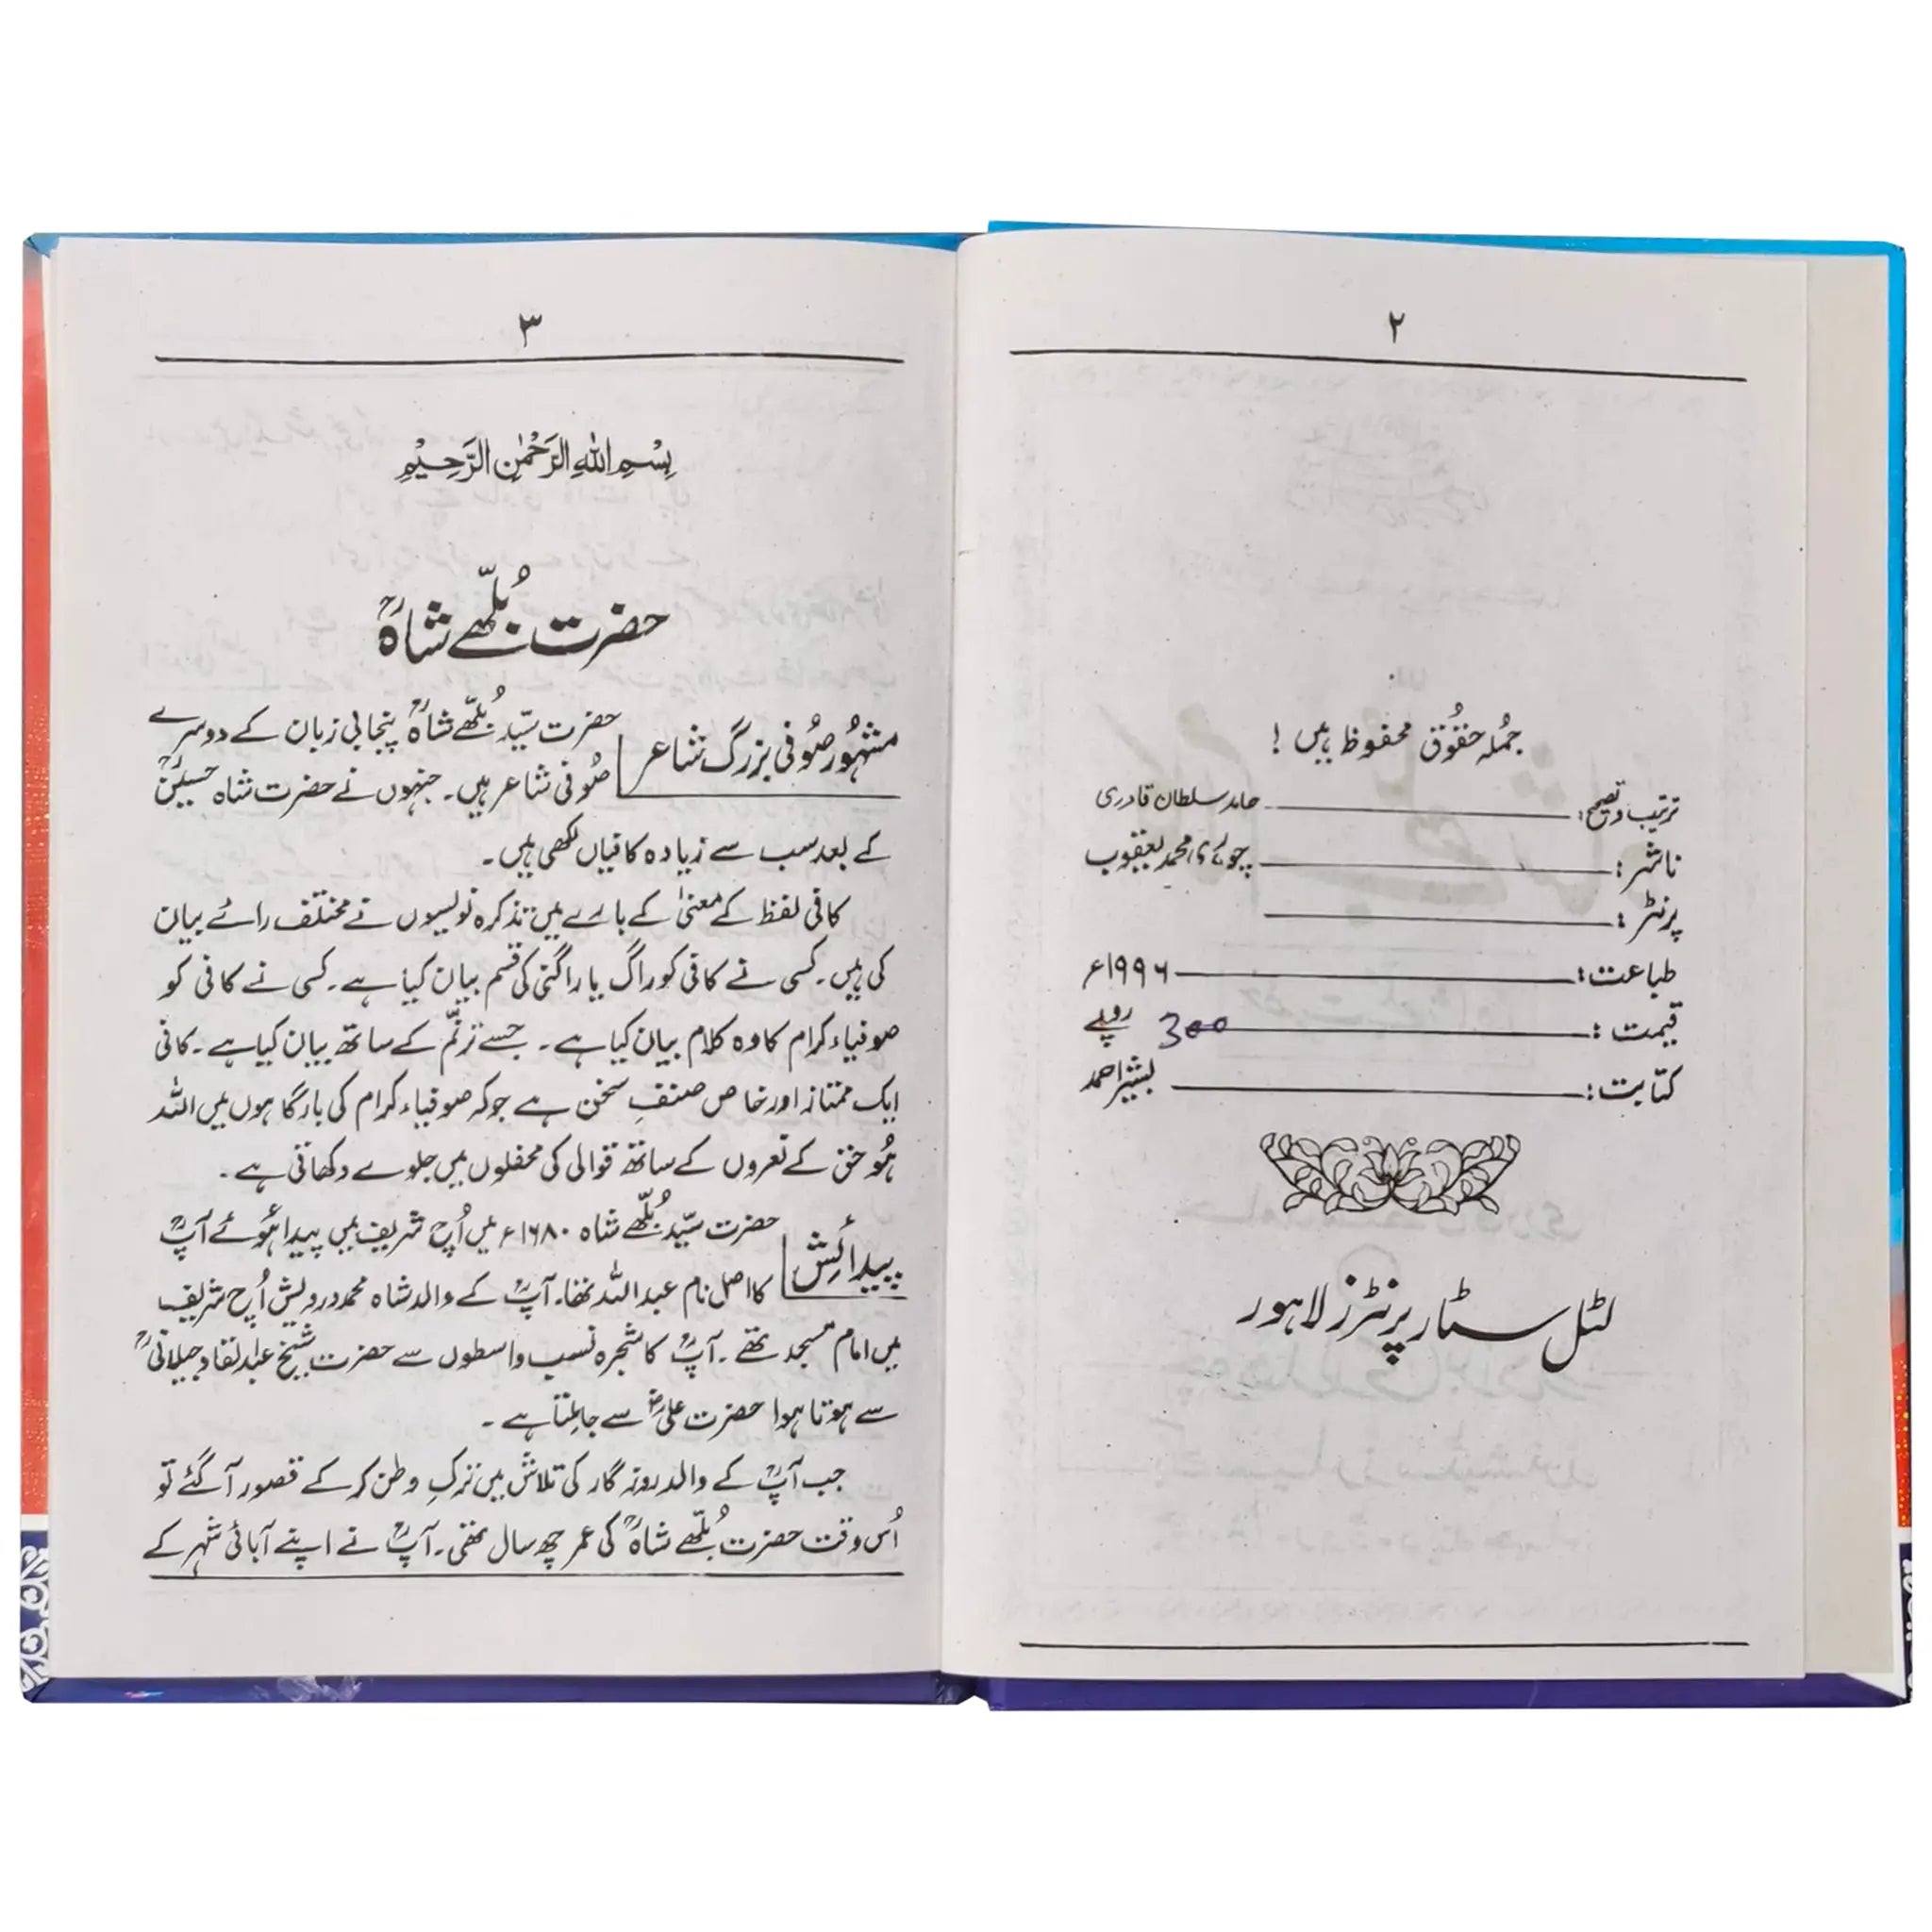 ۲
جُملہ حقُوق محفوظ ہیں !
ترتیب و تصحیح: حامد سلطان قادری
ناشر: چوہدری محمد یعقوب
پرنٹر:
طباعت: ۱۹۹۶ء
قیمت: 300 روپے
کتابت: بشیر احمد
لٹل سٹار پرنٹرز لاہور
۳
بِسْمِ اللهِ الرَّحْمٰنِ الرَّحِيْمِ
حضرت بُلّھے شاہؒ
مشہُور صُوفی بزرگ شاعر
حضرت سیّد بُلّھے شاہؒ پنجابی زبان کے دوسرے
صُوفی شاعر ہیں۔ جنہوں نے حضرت شاہ حسینؒ
کے بعد سب سے زیادہ کافیاں لکھی ہیں۔
کافی لفظ کے معنیٰ کے بارے میں تذکرہ نویسوں نے مختلف رائے بیان
کی ہیں۔ کسی نے کافی کو راگ یا راگنی کی قسم بیان کیا ہے۔ کسی نے کافی کو
صوفیاء کرام کا وہ کلام بیان کیا ہے۔ جسے ترنّم کے ساتھ بیان کیا ہے۔ کافی
ایک ممتاز اور خاص صنفِ سخن ہے جو کہ صوفیاء کرام کی بارگاہوں میں اللہ
ہُو حق کے نعروں کے ساتھ قوالی کی محفلوں میں جلوے دکھاتی ہے۔
پیدائش
حضرت سیّد بُلّھے شاہ ۱۶۸۰ء میں اُچ شریف میں پیدا ہُوئے آپؒ
کا اصل نام عبداللہ تھا۔ آپؒ کے والد شاہ محمد درویش اُچ شریف
میں امام مسجد تھے۔ آپؒ کا شجرہ نسب واسطوں سے حضرت شیخ عبدالقادر جیلانیؒ
سے ہوتا ہوا حضرت علیؓ سے جا ملتا ہے۔
جب آپؒ کے والد روزگار کی تلاش میں ترکِ وطن کر کے قصور آ گئے تو
اُس وقت حضرت بُلّھے شاہؒ کی عمر چھ سال تھی۔ آپؒ نے اپنے آبائی شہر کے